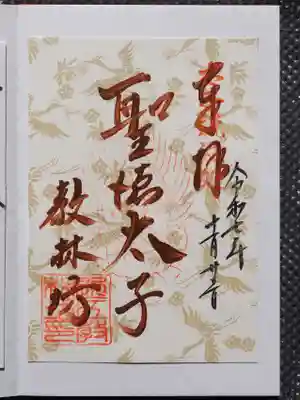 奉拝
令和七年
十一月廿二日
聖徳太子
教林坊